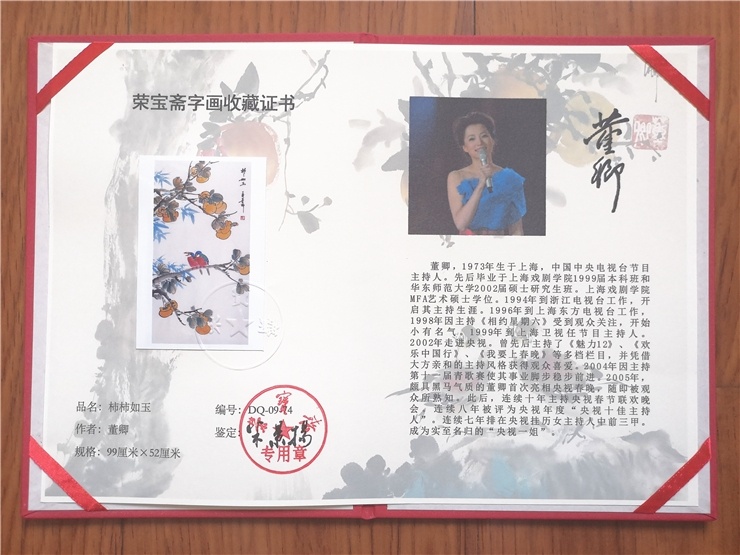 荣宝斋字画收藏证书
品名：柿柿如玉
作者：董卿
规格：99厘米×52厘米
编号：DQ-09-14
鉴定：
专用章
董卿
董卿，1973年生于上海，中国中央电视台节目
主持人。先后毕业于上海戏剧学院1999届本科班和
华东师范大学2002届硕士研究生班。上海戏剧学院
MFA艺术硕士学位。1994年到浙江电视台工作，开
启其主持生涯。1996年到上海东方电视台工作，
1998年因主持《相约星期六》受到观众关注，开始
小有名气。1999年到上海卫视任节目主持人。
2002年走进央视。曾先后主持了《魅力12》、《欢
乐中国行》、《我要上春晚》等多档栏目，并凭借
大方亲和的主持风格获得观众喜爱。2004年因主持
第十一届青歌赛使其事业脚步稳步前进。2005年，
颇具黑马气质的董卿首次亮相央视春晚，随即被观
众所熟知。此后，连续十年主持央视春节联欢晚
会，连续八年被评为央视年度“央视十佳主持
人”。连续七年排在央视挂历女主持人中前三甲。
成为实至名归的“央视一姐”。